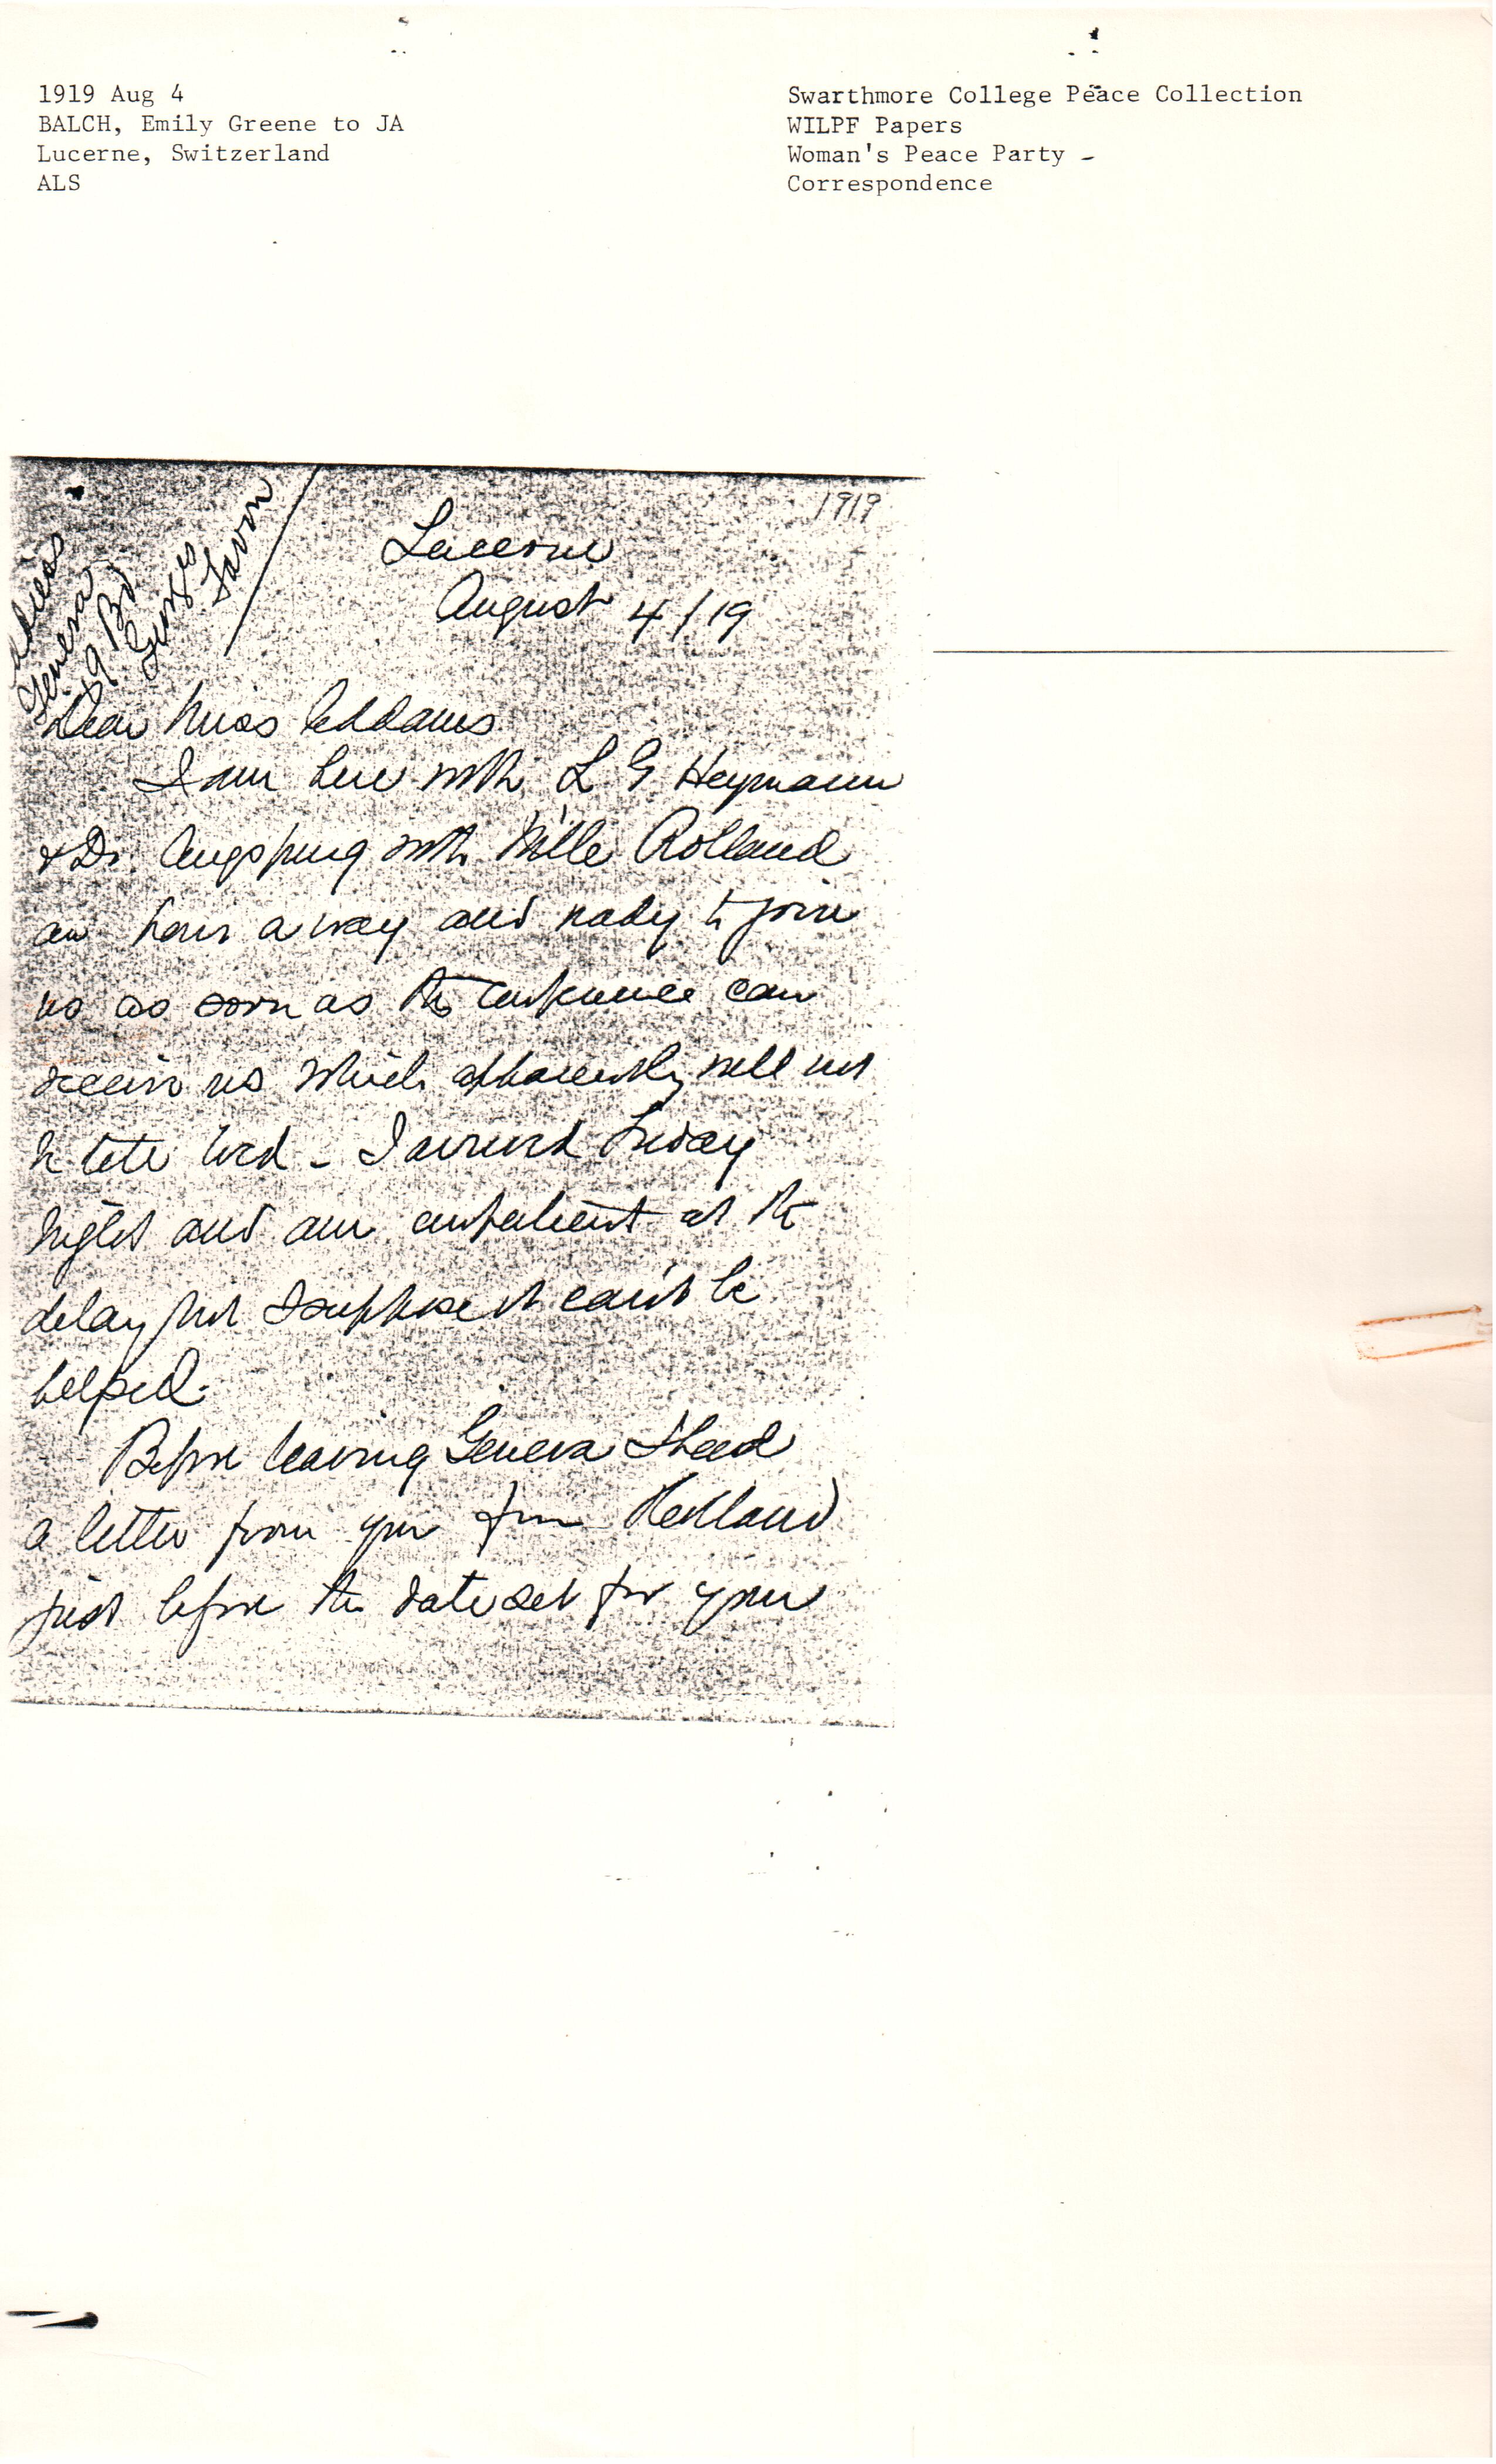 1919 Aug 4
BALCH, Emily Greene to JA
Lucerne, Switzerland
ALS
Swarthmore College Peace Collection
WILPF Papers
Woman's Peace Party -
Correspondence
1919
Lucerne
August 4/19
address
Geneva
19 Bd
Georges
Favon
Dear Miss Addams
I am here with L G Heymann
& Dr. Augspurg with Mlle Rolland
an hour away and ready to join
us as soon as the conference can
receive us which apparently will not
be till Wed - I arrived Friday
night and am impatient at the
delay but I suppose it can't be
helped.
Before leaving Geneva I had
a letter from you from Holland
just before the date set for your